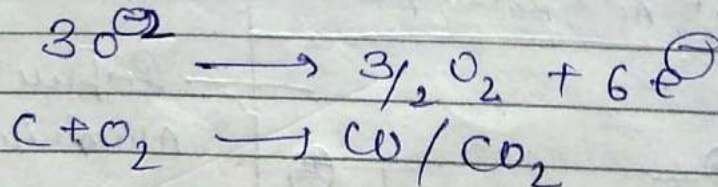 3O⊖2 ⟶ 3/2 O2 + 6e⊖
C + O2 ⟶ CO / CO2